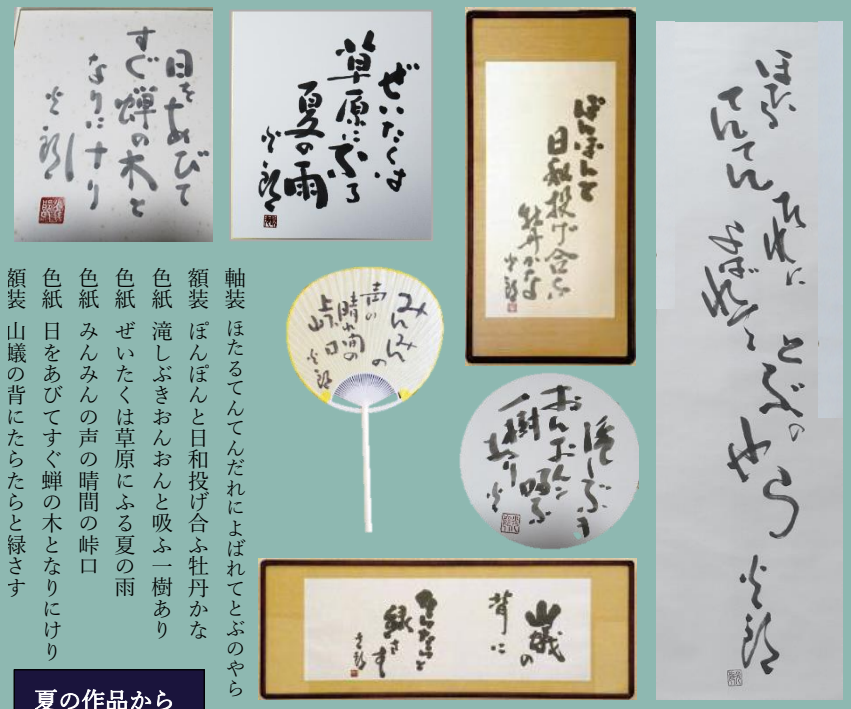 日をあびて
すぐ蝉の木と
なりにけり
ぜいたくは
草原にふる
夏の雨
ぽんぽんと
日和投げ合ふ
牡丹かな
ほたる
てんてん
たれに
よばれて
とぶの
やら
みんみんの
声の
晴れ間の
峠口
滝しぶき
おんおんと吸ふ
一樹あり
山蟻の
背に
たらたらと
緑さす
軸装 ほたるてんてんだれによばれてとぶのやら
額装 ぽんぽんと日和投げ合ふ牡丹かな
色紙 滝しぶきおんおんと吸ふ一樹あり
色紙 ぜいたくは草原にふる夏の雨
色紙 みんみんの声の晴間の峠口
色紙 日をあびてすぐ蝉の木となりにけり
額装 山蟻の背にたらたらと緑さす
夏の作品から